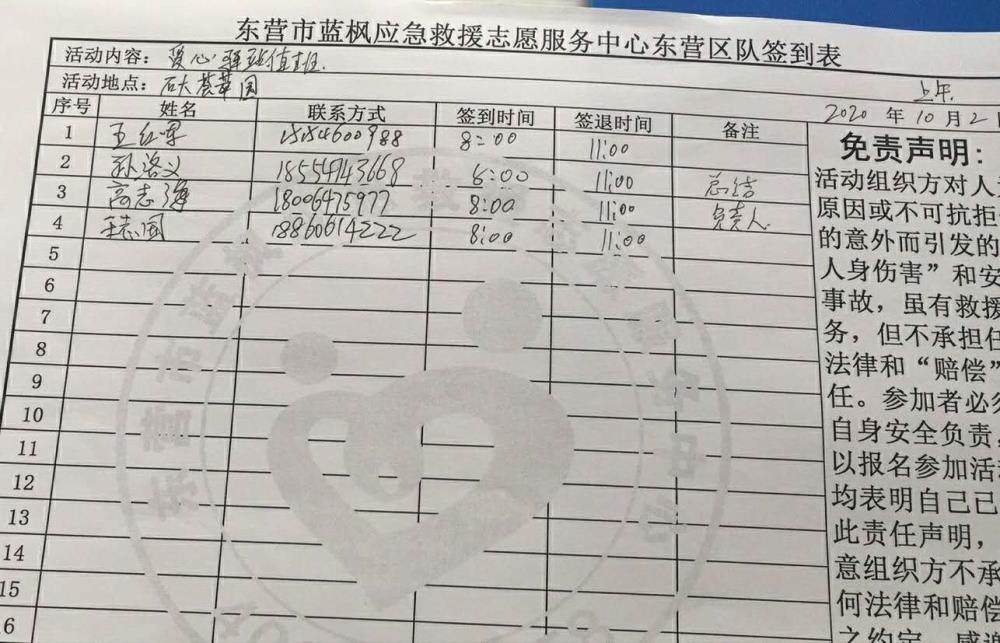 东营市蓝枫应急救援志愿服务中心东营区队签到表
活动内容：爱心驿站值班.
活动地点：石大荟萃园
上午.
2020 年 10 月 2
序号 姓名 联系方式 签到时间 签退时间 备注
1 王红军 15154600988 8:00 11:00
2 孙洛义 18554743668 8:00 11:00 总结
3 高志海 18006475977 8:00 11:00 负责人
4 王志国 18860614222 8:00 11:00
5
6
7
8
9
10
11
12
13
14
15
6
免责声明：
活动组织方对人
原因或不可抗拒
的意外而引发的
人身伤害”和安
事故，虽有救援
务，但不承担任
法律和“赔偿”
任。参加者必须
自身安全负责，
以报名参加活
均表明自己已
此责任声明，
意组织方不承
何法律和赔偿
之约定。感谢
东营市蓝枫应急救援志愿服务中心